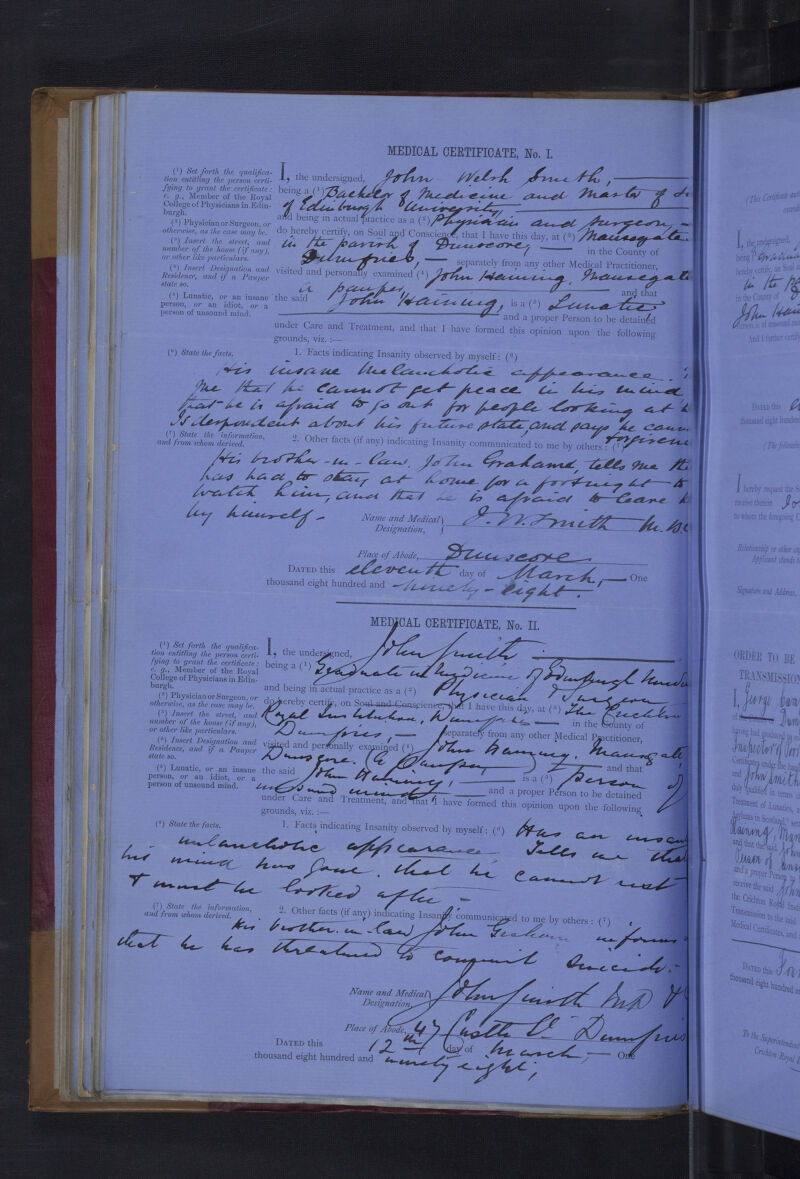 MEDICAL CERTIFICATE, No. I.
(¹) Set forth the qualifica-
tion entitling the person certi-
fying to grant the certificate:
e. g., Member of the Royal
College of Physicians in Edin-
burgh.
(²) Physician or Surgeon, or
otherwise, as the case may be.
(³) Insert the street, and
number of the house (if any),
or other like particulars.
(⁴) Insert Designation and
Residence, and if a Pauper
state so.
(⁵) Lunatic, or an insane
person, or an idiot, or a
person of unsound mind.
I, the undersigned, John Welsh Smith,
being a (¹) Bachelor of Medicine and Master of
of Edinburgh University,
and being in actual practice as a (²) Physician and Surgeon,
do hereby certify, on Soul and Conscience, that I have this day, at (³) Mansegate
in the parish of Dunscore, in the County of
Dumfries, separately from any other Medical Practitioner,
visited and personally examined (⁴) John Haining, Mansegate
a pauper, and that
the said John Haining, is a (⁵) Lunatic,
and a proper Person to be detained
under Care and Treatment, and that I have formed this opinion upon the following
grounds, viz. :—
(⁶) State the facts.
1. Facts indicating Insanity observed by myself: (⁶)
His insane melancholic appearance.
me that he cannot get peace in his mind,
that he is afraid to go out for people looking at
Is despondent about his future state, and says he
(⁷) State the information,
and from whom derived.
2. Other facts (if any) indicating Insanity communicated to me by others: (⁷)
His brother-in-law, John Grahame, tells me
has had to stay at home for a fortnight to
watch him, and that he is afraid to leave
by himself-
Name and Medical
Designation, J. W. Smith M.B.
Place of Abode, Dunscore
DATED this eleventh day of March, One
thousand eight hundred and ninety-eight.
MEDICAL CERTIFICATE, No. II.
(¹) Set forth the qualifica-
tion entitling the person certi-
fying to grant the certificate:
e. g., Member of the Royal
College of Physicians in Edin-
burgh.
(²) Physician or Surgeon, or
otherwise, as the case may be.
(³) Insert the street, and
number of the house (if any),
or other like particulars.
(⁴) Insert Designation and
Residence, and if a Pauper
state so.
(⁵) Lunatic, or an insane
person, or an idiot, or a
person of unsound mind.
I, the undersigned, John Smith
being a (¹) Graduate in Medicine of Edinburgh
and being in actual practice as a (²) Physician & Surgeon
do hereby certify, on Soul and Conscience, that I have this day, at (³) The Crichton
Royal Institution, Dumfries in the County of
Dumfries, separately from any other Medical Practitioner,
visited and personally examined (⁴) John Haining, Mansegate,
Dunscore. (a Pauper) and that
the said John Haining, is a (⁵) Person of
unsound mind, and a proper Person to be detained
under Care and Treatment, and that I have formed this opinion upon the following
grounds, viz. :—
(⁶) State the facts.
1. Facts indicating Insanity observed by myself: (⁶) Has an
melancholic appearance. Tells me that
his mind has gone, that he cannot rest
& must be looked after -
(⁷) State the information,
and from whom derived.
2. Other facts (if any) indicating Insanity communicated to me by others: (⁷)
His brother-in-law John Graham informs
that he has threatened to commit suicide.
Name and Medical
Designation, John Smith M.D
Place of Abode, 47 Castle St Dumfries
DATED this 12th day of March, One
thousand eight hundred and ninety eight,
I, the undersigned,
hereby certify, on Soul
in the
in the County of
John
And I further certify
DATED this
thousand eight hundred
(The following
I hereby request the
receive therein
to whom the foregoing
Relationship or other
Applicant stands
Signature and Address,
ORDER TO BE
TRANSMISSION
I, George
having had produced
Inspector of
Certificates under the
and John Smith
duly qualified in terms
Treatment of Lunatics,
Asylums in Scotland,
Haining,
and that the said John
Person of
and a proper Person
receive the said
the Crichton Royal
Transmission to the said
Medical Certificates, and
DATED this
thousand eight hundred
To the Superintendent
Crichton Royal